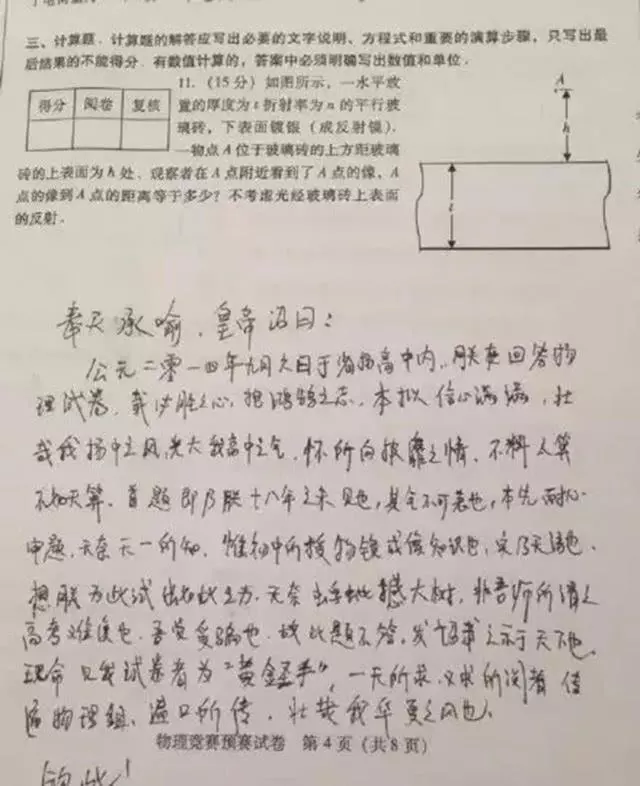 三、计算题．计算题的解答应写出必要的文字说明、方程式和重要的演算步骤，只写出最
后结果的不能得分．有数值计算的，答案中必须明确写出数值和单位．
得分 阅卷 复核
11．（15分）如图所示，一水平放
置的厚度为 t 折射率为 n 的平行玻
璃砖，下表面镀银（成反射镜）．
一物点 A 位于玻璃砖的上方距玻璃
砖的上表面为 h 处．观察者在 A 点附近看到了 A 点的像，A
点的像到 A 点的距离等于多少？不考虑光经玻璃砖上表面
的反射．
A
h
t
奉天承喻，皇帝诏曰：
公元二零一四年九月六日于省扬高中内，朕来回答物
理试卷，载必胜之心，抱鸿鹄之志，本拟信心满满，壮
哉我扬中之风，光大我高中之气，怀所向披靡之情，不料人算
不如天算，首题即乃朕十八年之未见也，其气不可忍也，本先耐心
审题，无奈无一所知，惟初中所授物镜成像知识也，实乃无语也．
想朕为此试出如此之力，无奈蚍蜉撼大树，非吾师所谓之
高考难度也，吾觉受骗也，故此题不答，发诏书之示于天下也，
现命 试卷者为“黄金圣手”，一天所求，又求所阅者传
遍物理组，遍口所传，壮哉我华夏之风也．
物理竞赛预赛试卷 第4页（共8页）
钦此！